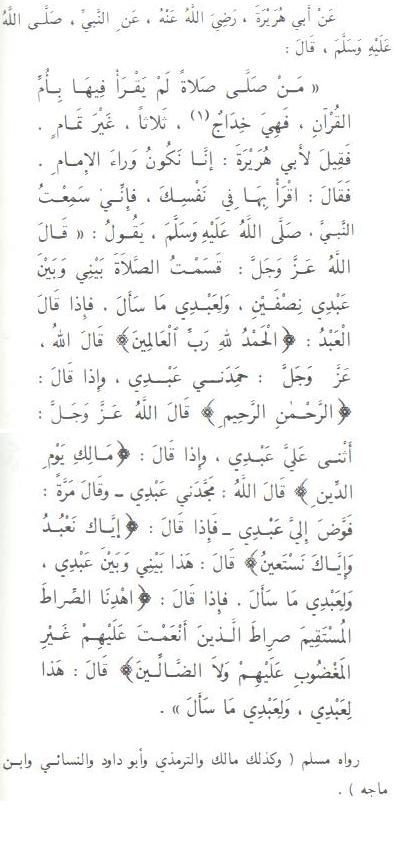 عَنْ أَبي هُرَيْرَةَ ، رَضِيَ اللَّهُ عَنْهُ ، عَنِ النَّبِيِّ ، صَلَّى اللَّهُ
عَلَيْهِ وَسَلَّمَ ، قَالَ :
« مَـنْ صَلَّـى صَلَاةً لَمْ يَقْـرَأْ فِيهَـا بِـأُمِّ
القُرْآنِ ، فَهِيَ خِدَاجٌ(١) ، ثَلَاثاً ، غَيْرَ تَمَامٍ .
فَقِيلَ لأَبي هُرَيْرَةَ : إنَّـا نَكُونُ وَراءَ الإِمـامِ .
فَقَالَ : اقْرَأْ بِهَـا فِي نَفْسِـكَ ، فَإِنِّـي سَمِعْـتُ
النَّبِيَّ ، صَلَّى اللَّهُ عَلَيْهِ وَسَلَّمَ ، يَقُولُ : « قَـالَ
اللَّهُ عَـزَّ وَجَلَّ : قَسَمْتُ الصَّلَاةَ بَيْنِي وَبَيْنَ
عَبْدِي نِصْفَيْنِ ، وَلِعَبْدِي مَا سَأَلَ . فَإِذَا قَالَ
الْعَبْدُ : ﴿الْحَمْدُ لِلهِ رَبِّ الْعَالَمِينَ﴾ قَالَ اللهُ ،
عَزَّ وَجَلَّ : حَمِدَنـي عَبْـدِي ، وَإِذا قَالَ :
﴿الرَّحْمٰنِ الرَّحِيمِ﴾ قَالَ اللَّهُ عَـزَّ وَجَـلَّ :
أَثْنـى عَلَيَّ عَبْدِي ، وَإِذا قَالَ : ﴿مَـالِكِ يَوْمِ
الدِّينِ﴾ قَالَ اللَّهُ : مَجَّدَنِي عَبْدِي ـ وَقَالَ مَرَّةً :
فَوَّضَ إِلَيَّ عَبْـدِي ـ فَإِذَا قَالَ : ﴿إيَّاكَ نَعْبُدُ
وَإيَّاكَ نَسْتَعينُ﴾ قَالَ : هَذَا بَيْنِي وَبَيْنَ عَبْدِي ،
وَلِعَبْدِي مَا سَأَلَ . فَإِذا قَالَ : ﴿اهْدِنَا الصِّراطَ
المُسْتَقِيمَ صِراطَ الَّـذينَ أَنْعَمْتَ عَلَيْهِمْ غَيْـرِ
المَغْضُوبِ عَلَيْهِمْ وَلاَ الضَّالِّـينَ﴾ قَالَ : هَذَا
لِعَبْدِي ، وَلِعَبْدِي مَا سَأَلَ » .
رواه مسلم ( وكذلك مالك والترمذي وأبو داود والنسائي وابـن
ماجه ) .